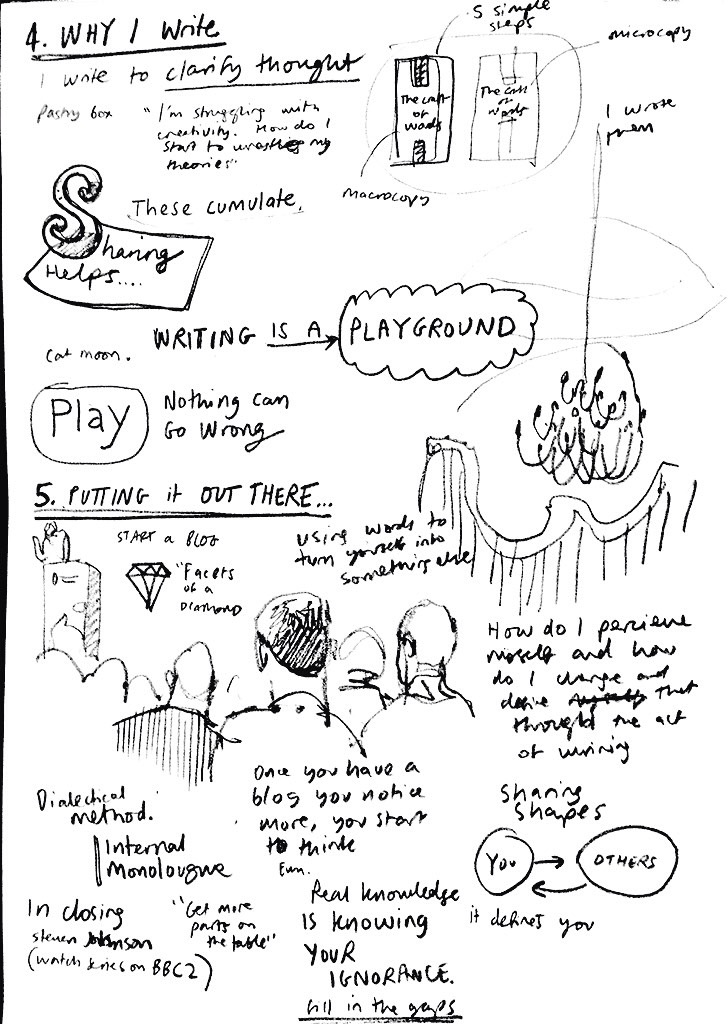 4. WHY I Write
I write to clarify thought
Pastry box
"I'm struggling with
creativity. How do I
start to my
theories"
5 simple
steps
microcopy
The craft
of words
The craft
of words
macrocopy
I wrote
These cumulate.
Sharing
HELPS....
WRITING IS A PLAYGROUND
Cat moon.
Play
Nothing can
Go Wrong
5. PUTTING it OUT THERE...
START a BLOG
"Facets
of a
DIAMOND
using words to
turn yourself into
something else
How do I percieve
myself and how
do I change and
that
through the act
of writing
Dialectical
method.
Internal
Monolougue
Once you have a
blog you notice
more, you start
to think
Sharing
Shapes
YOU
OTHERS
it defines you
In closing
steven Johnson
(watch series on BBC2)
"Get more
parts on
the table"
Real knowledge
IS knowing
YOUR
IGNORANCE.
fill in the gaps